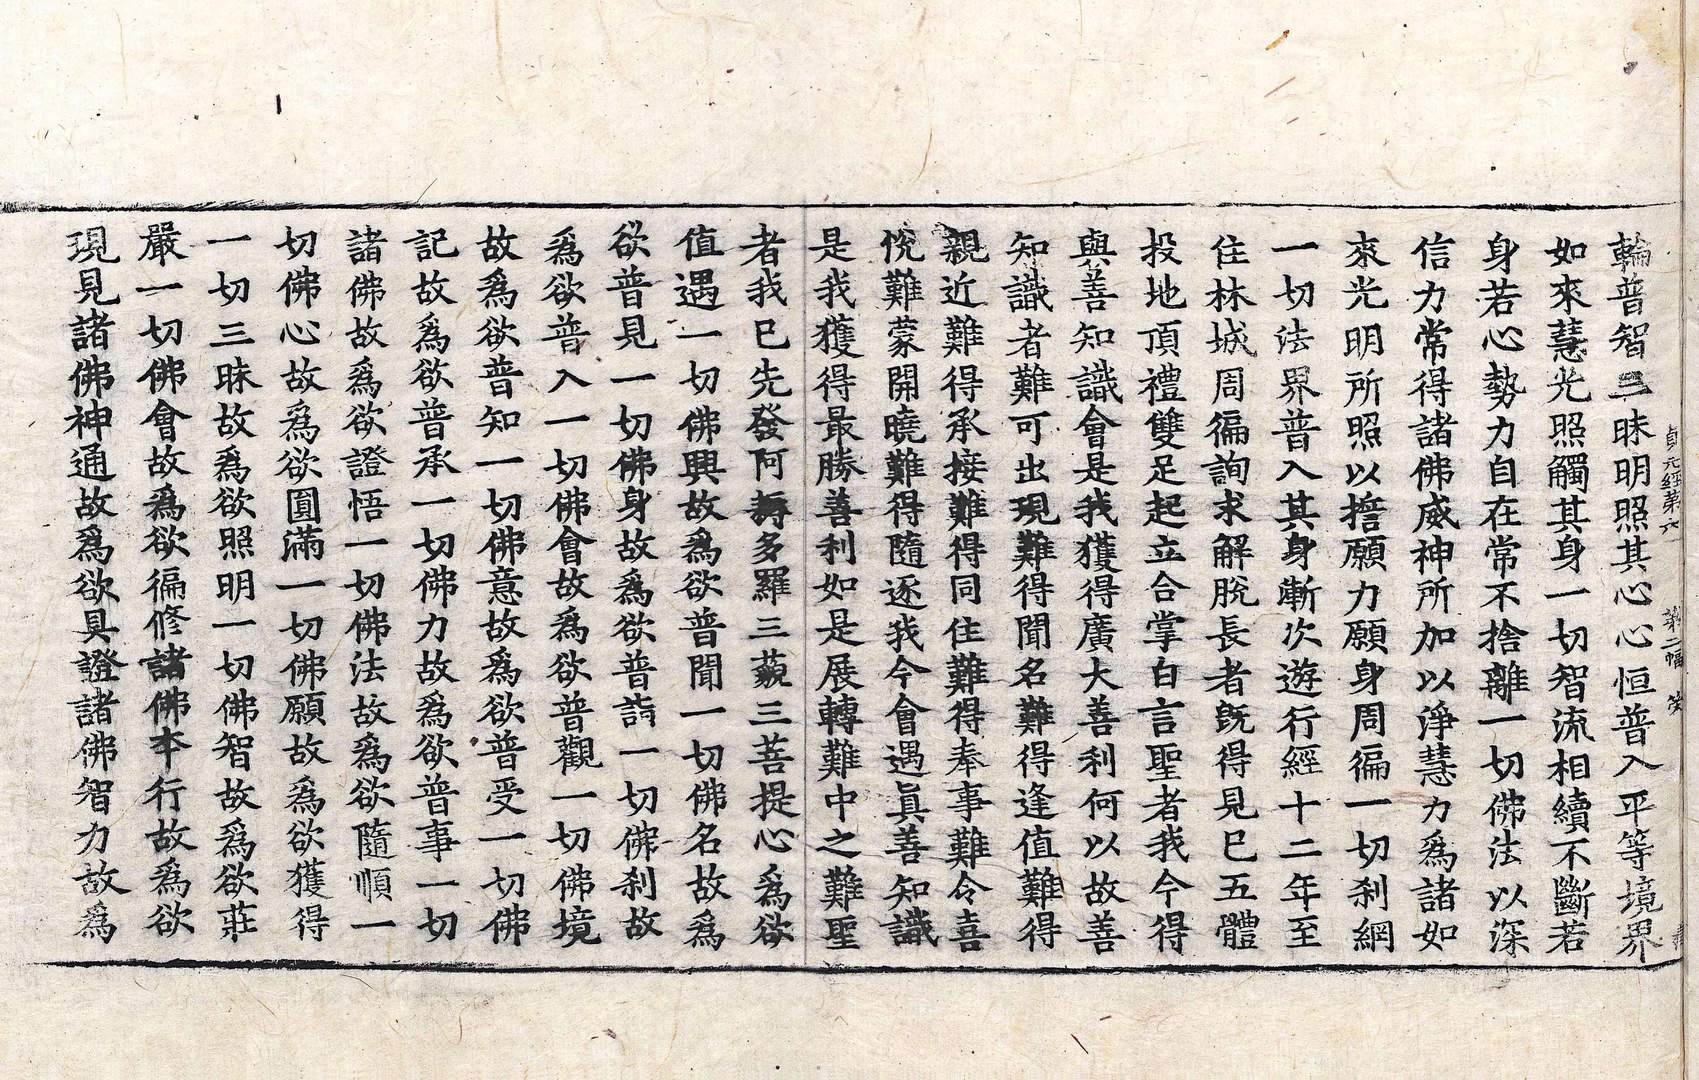 貞元經第六 第二幅 㳙
輪普智三昧明照其心心恒普入平等境界
如來慧光照觸其身一切智流相續不斷若
身若心勢力自在常不捨離一切佛法以深
信力常得諸佛威神所加以淨慧力爲諸如
來光明所照以擔願力願身周徧一切刹網
一切法界普入其身漸次遊行經十二年至
住林城周徧詢求解脫長者旣得見已五體
投地頂禮雙足起立合掌白言聖者我今得
與善知識會是我獲得廣大善利何以故善
知識者難可出現難得聞名難得逢值難得
親近難得承接難得同住難得奉事難令喜
悅難蒙開曉難得隨逐我今會遇眞善知識
是我獲得最勝善利如是展轉難中之難聖
者我已先發阿耨多羅三藐三菩提心爲欲
值遇一切佛興故爲欲普聞一切佛名故爲
欲普見一切佛身故爲欲普詣一切佛刹故
爲欲普入一切佛會故爲欲普觀一切佛境
故爲欲普知一切佛意故爲欲普受一切佛
記故爲欲普承一切佛力故爲欲普事一切
諸佛故爲欲證悟一切佛法故爲欲隨順一
切佛心故爲欲圓滿一切佛願故爲欲獲得
一切三昧故爲欲照明一切佛智故爲欲莊
嚴一切佛會故爲欲徧修諸佛本行故爲欲
現見諸佛神通故爲欲具證諸佛智力故爲